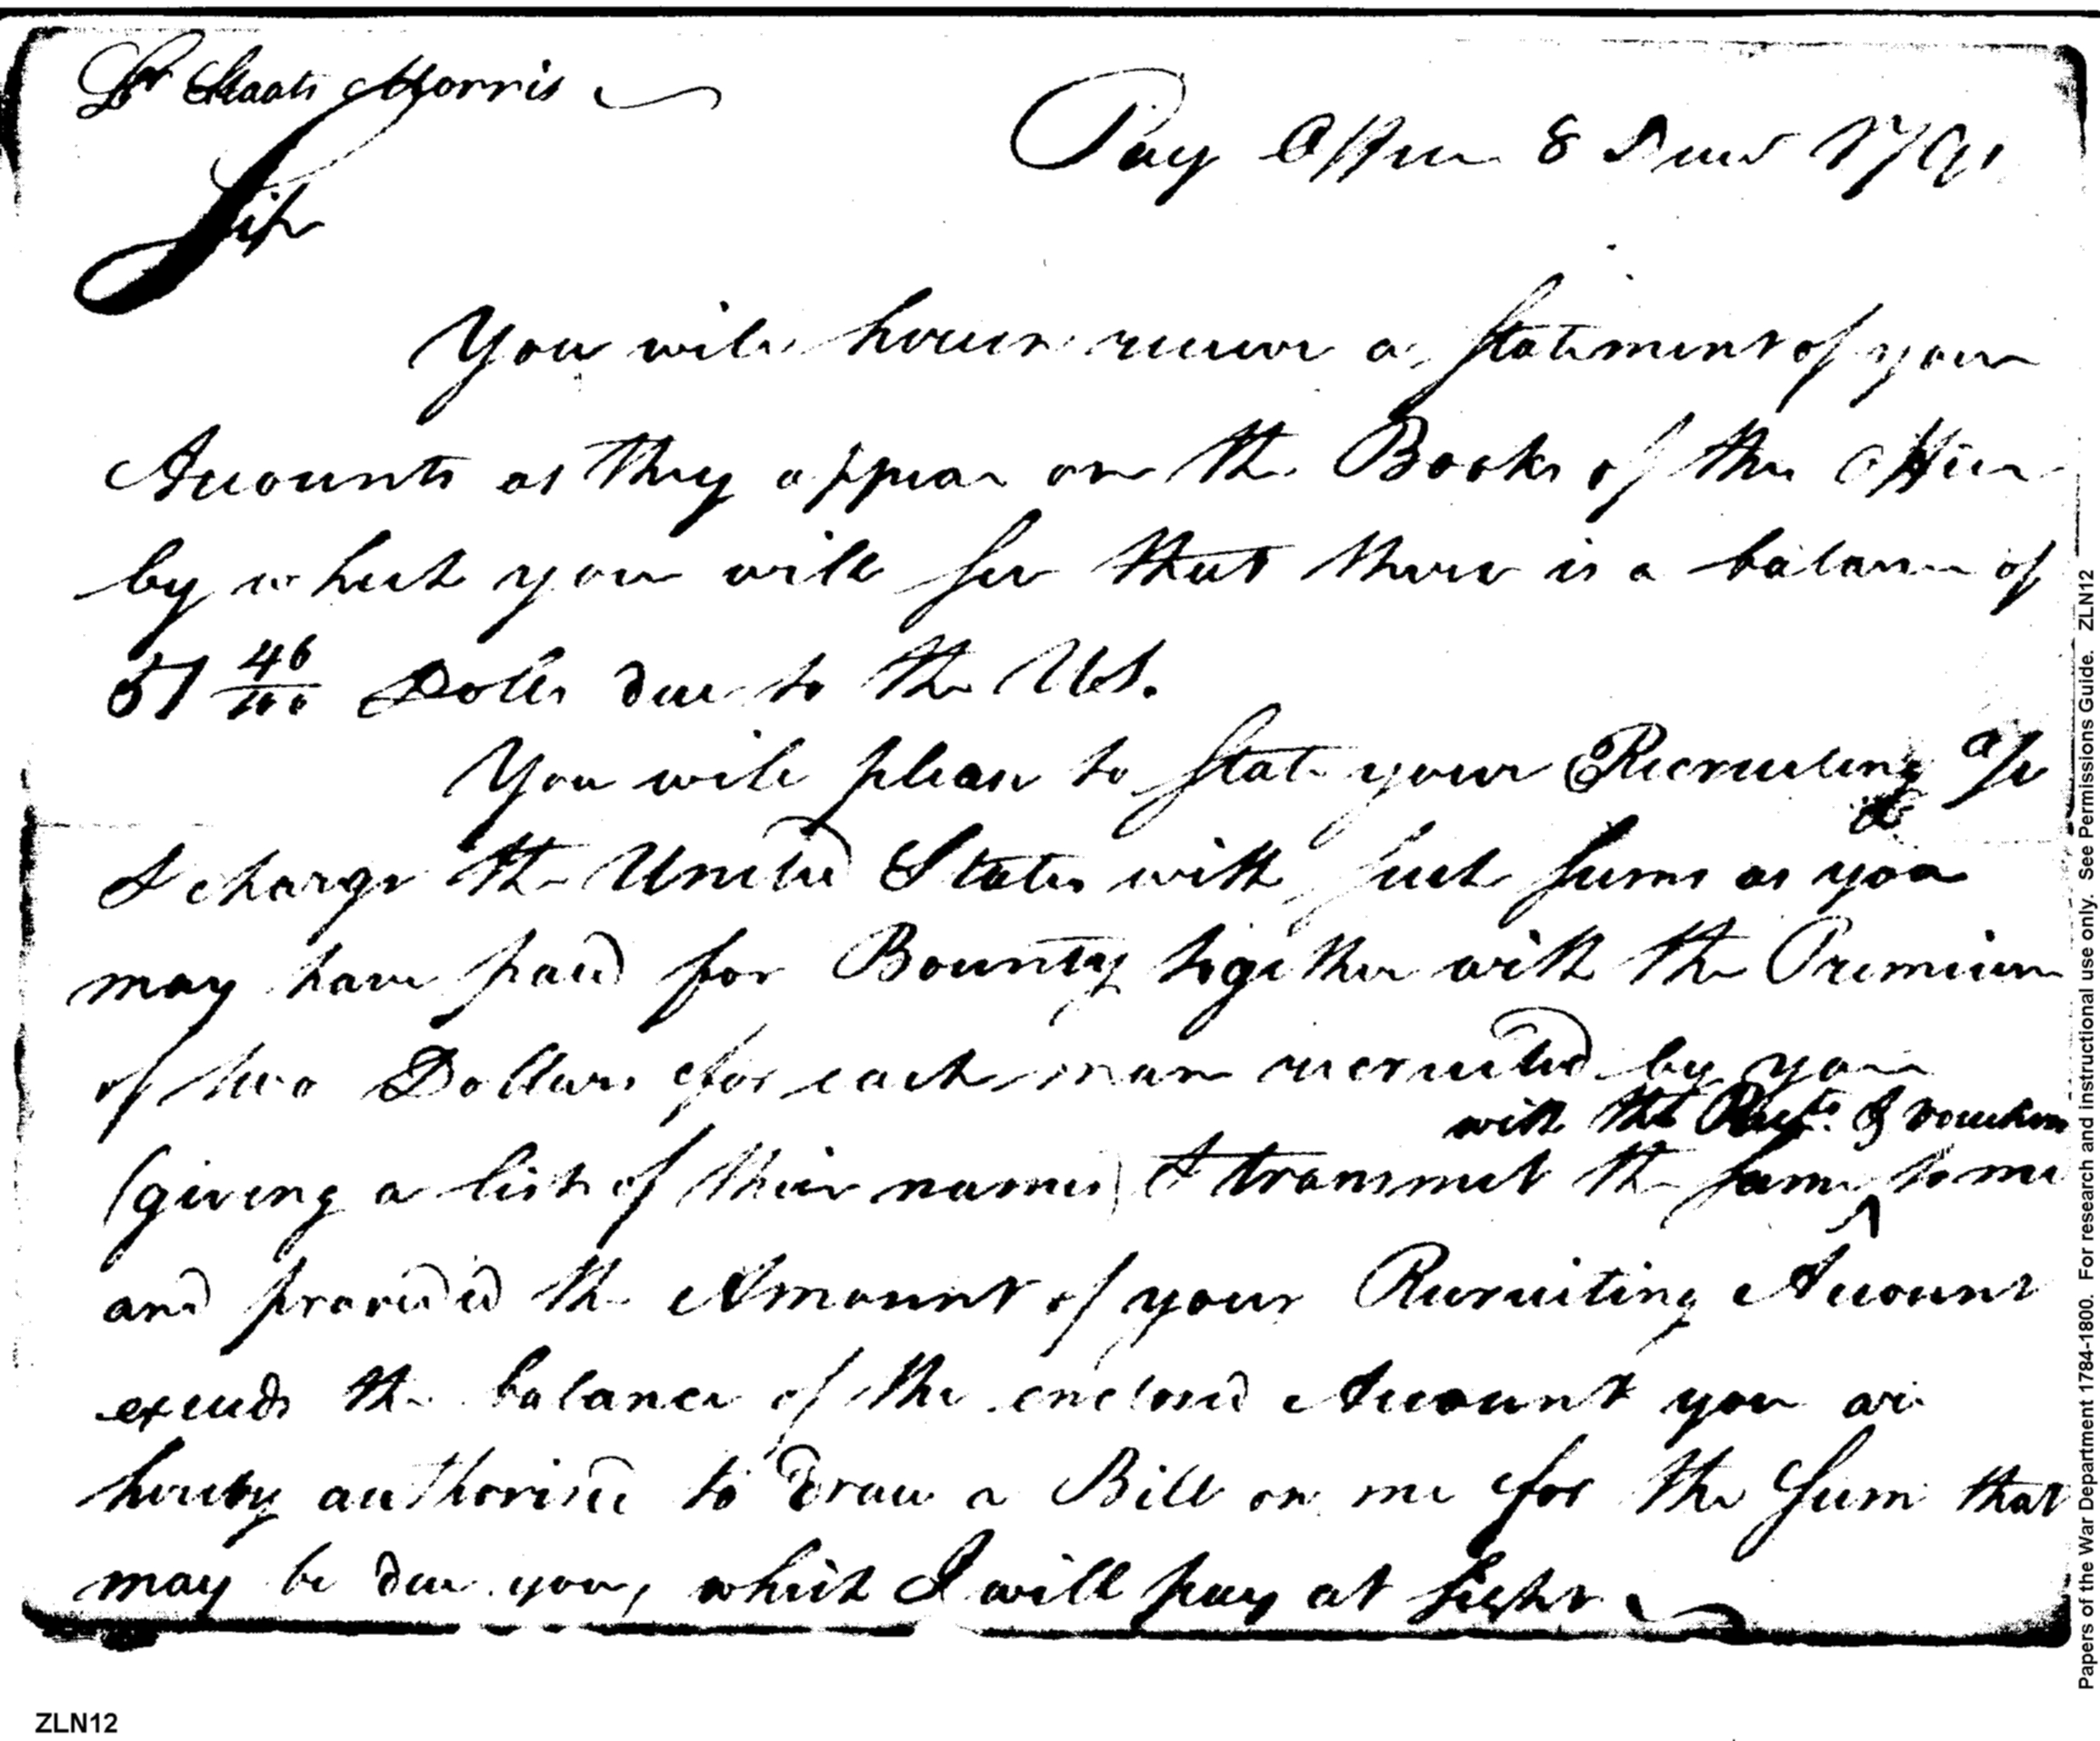 Lt Staats Morris
Pay Office 8 1791
Sir
You will herein receive a Statement of your
Accounts as they appear on the Books of this Office
by which you will see that there is a balance of
51 46/100 Dolls due to the US.
You will please to State your Recruiting a/c
& charge the United States with such sums as you
may have paid for Bounty together with the Premium
of two Dollars for each man recruited by you
with the Rects. & vouchers
(giving a list of their names) & transmit the same ^ to me
and provided the Amount of your Recruiting Account
exceeds the balance of the enclosed Account you are
hereby authorised to draw a Bill on me for the Sum that
may be due you, which I will pay at sight
Papers of the War Department 1784-1800. For research and instructional use only. See Permissions Guide. ZLN12
ZLN12